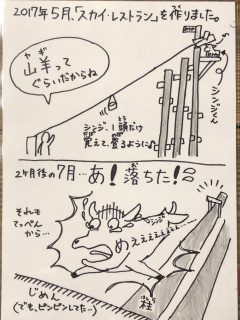 2017年5月、「スカイ・レストラン」を作りました。
ヤギ
山羊って
ぐらいだからね
シンジ
シンジ、1頭だけ
覚えて、登るように♪
2ヶ月後の7月…あ!落ちた!!
それも
てっぺん
から…
シンジ
めえぇぇぇぇぇ…
じめん
(でも、ピンピンしてた…)
柱